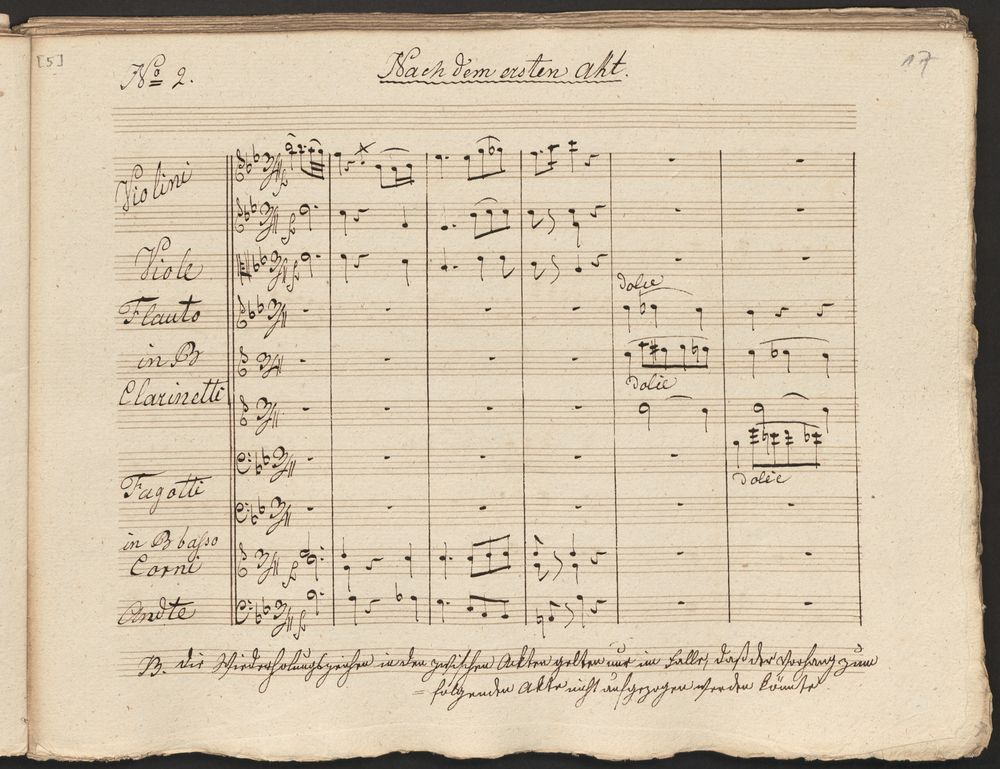 [5]
No 2.
Nach dem ersten Akt.
17
Violini
Viole
Flauto
in B
Clarinetti
Fagotti
in B basso
Corni
Andte
dolce
dolce
dolce
B. die Wiederholungszeichen in den zwischen Akten gelten nur im Falle, daß der Vorhang zum
= folgenden Akte nicht aufgezogen werden könnte